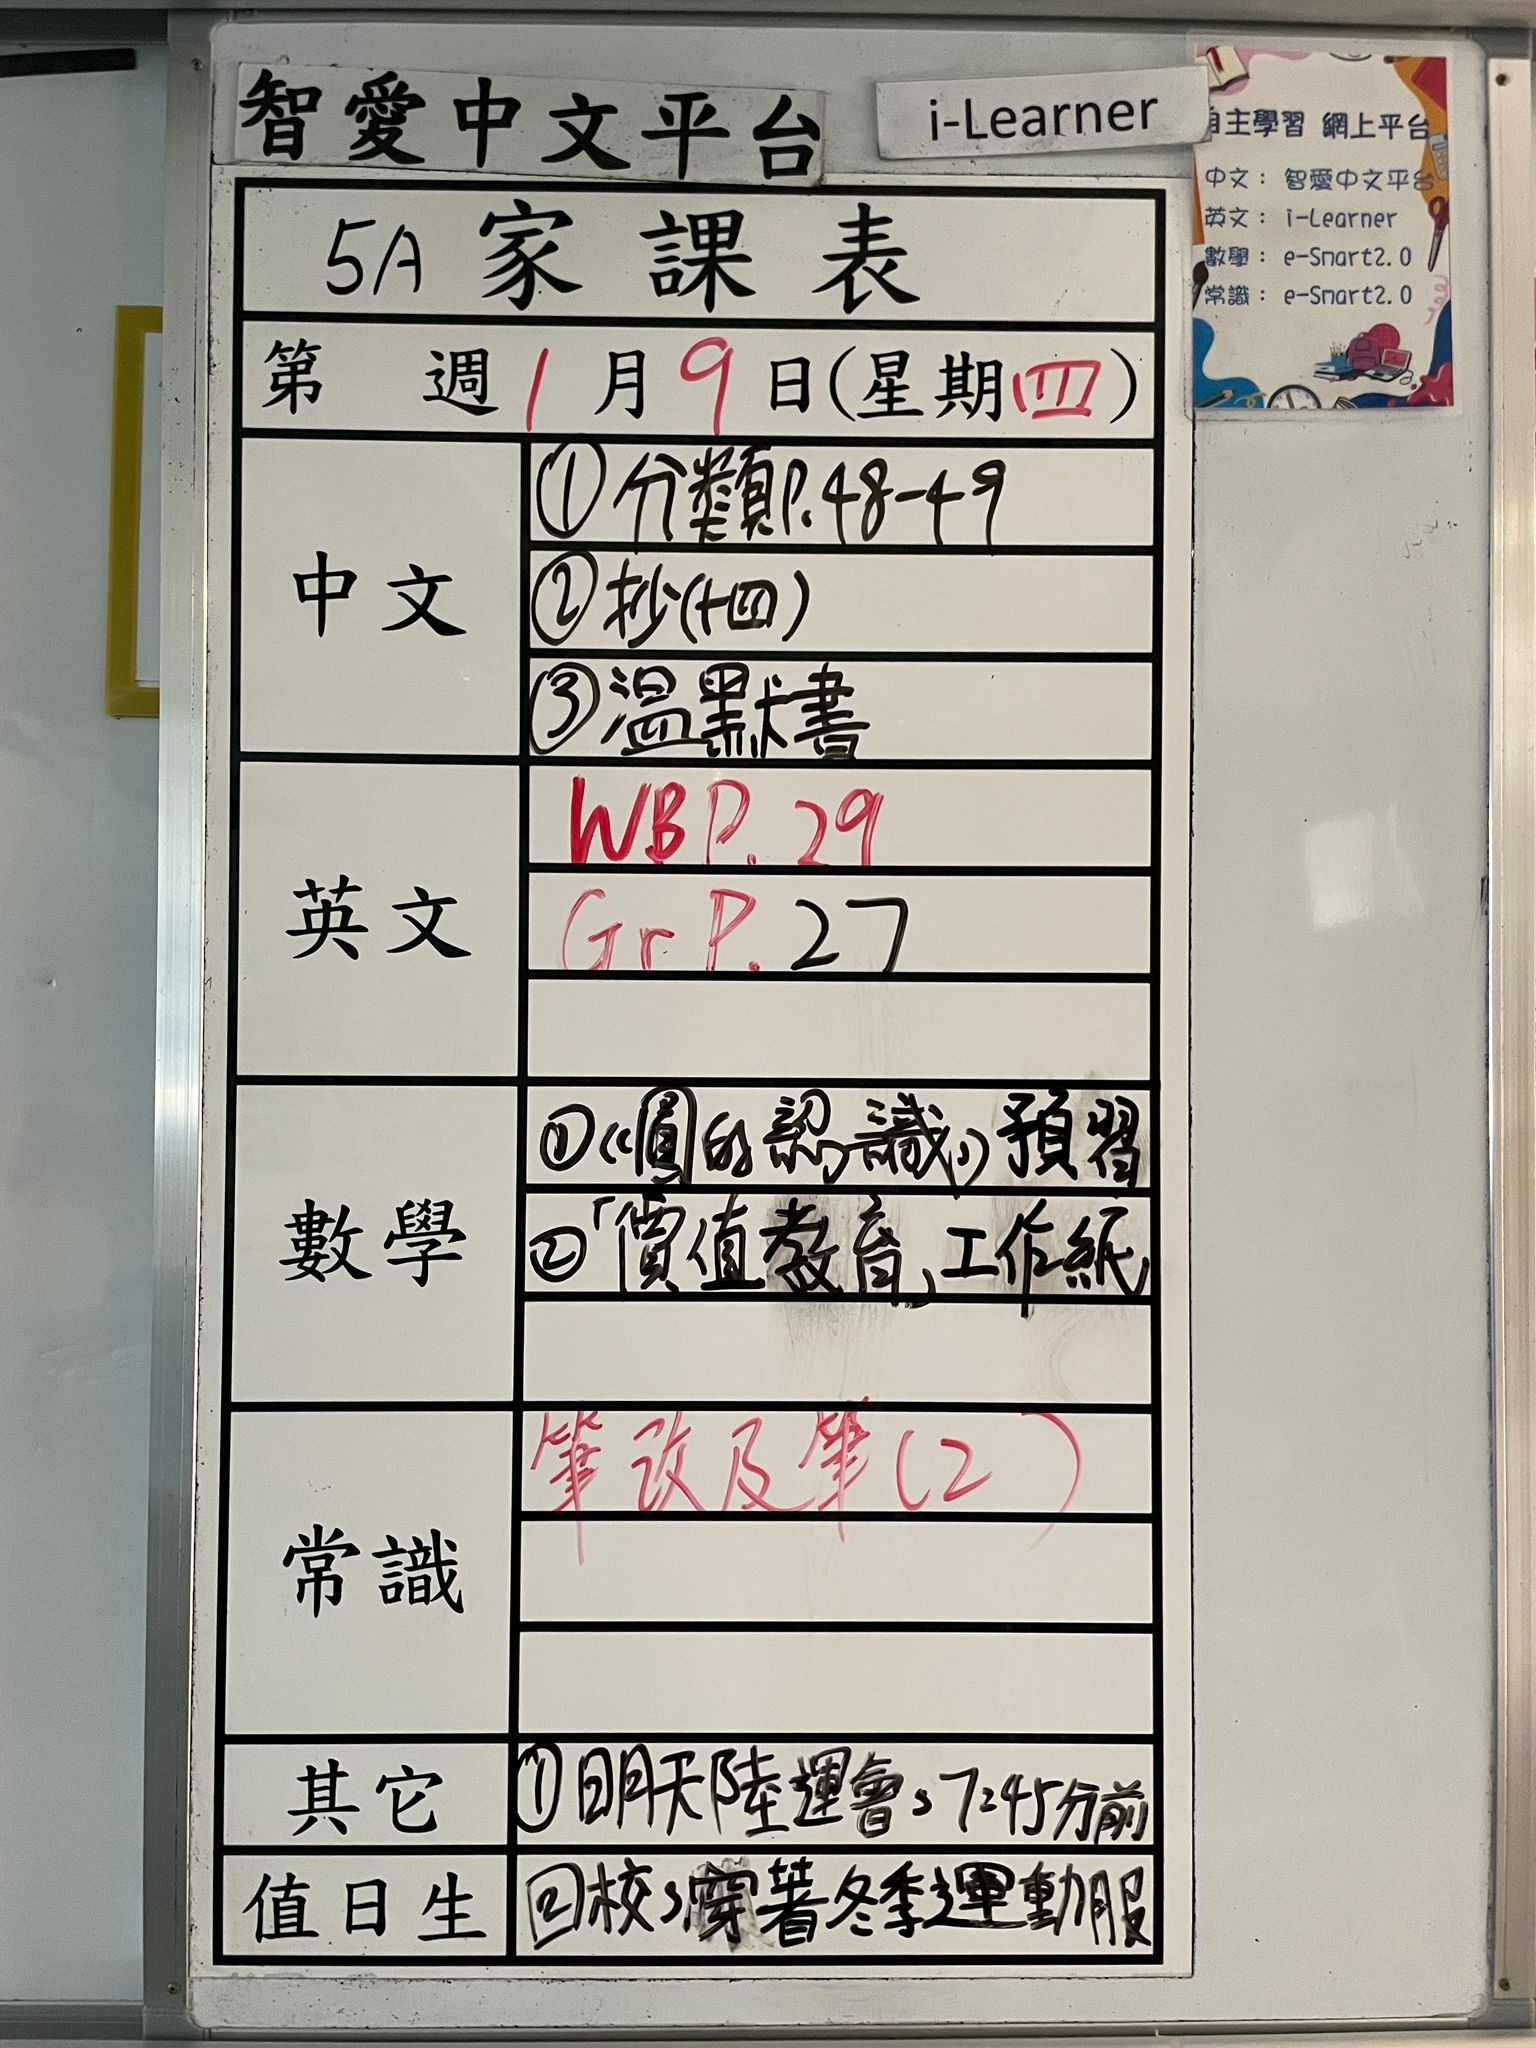 智愛中文平台
i-Learner
自主學習 網上平台
中文： 智愛中文平台
英文： i-Learner
數學： e-Smart2.0
常識： e-Smart2.0
5A 家課表
第 週 1月9日(星期四)
中文
①分類P.48-49
②抄(十四)
③温默書
英文
WB P. 29
Gr P. 27
數學
①《圓的認識》預習
②「價值教育」工作紙
常識
筆改及筆(2 )
其它
①明天陸運會，7:45分前
值日生
回校，穿著冬季運動服